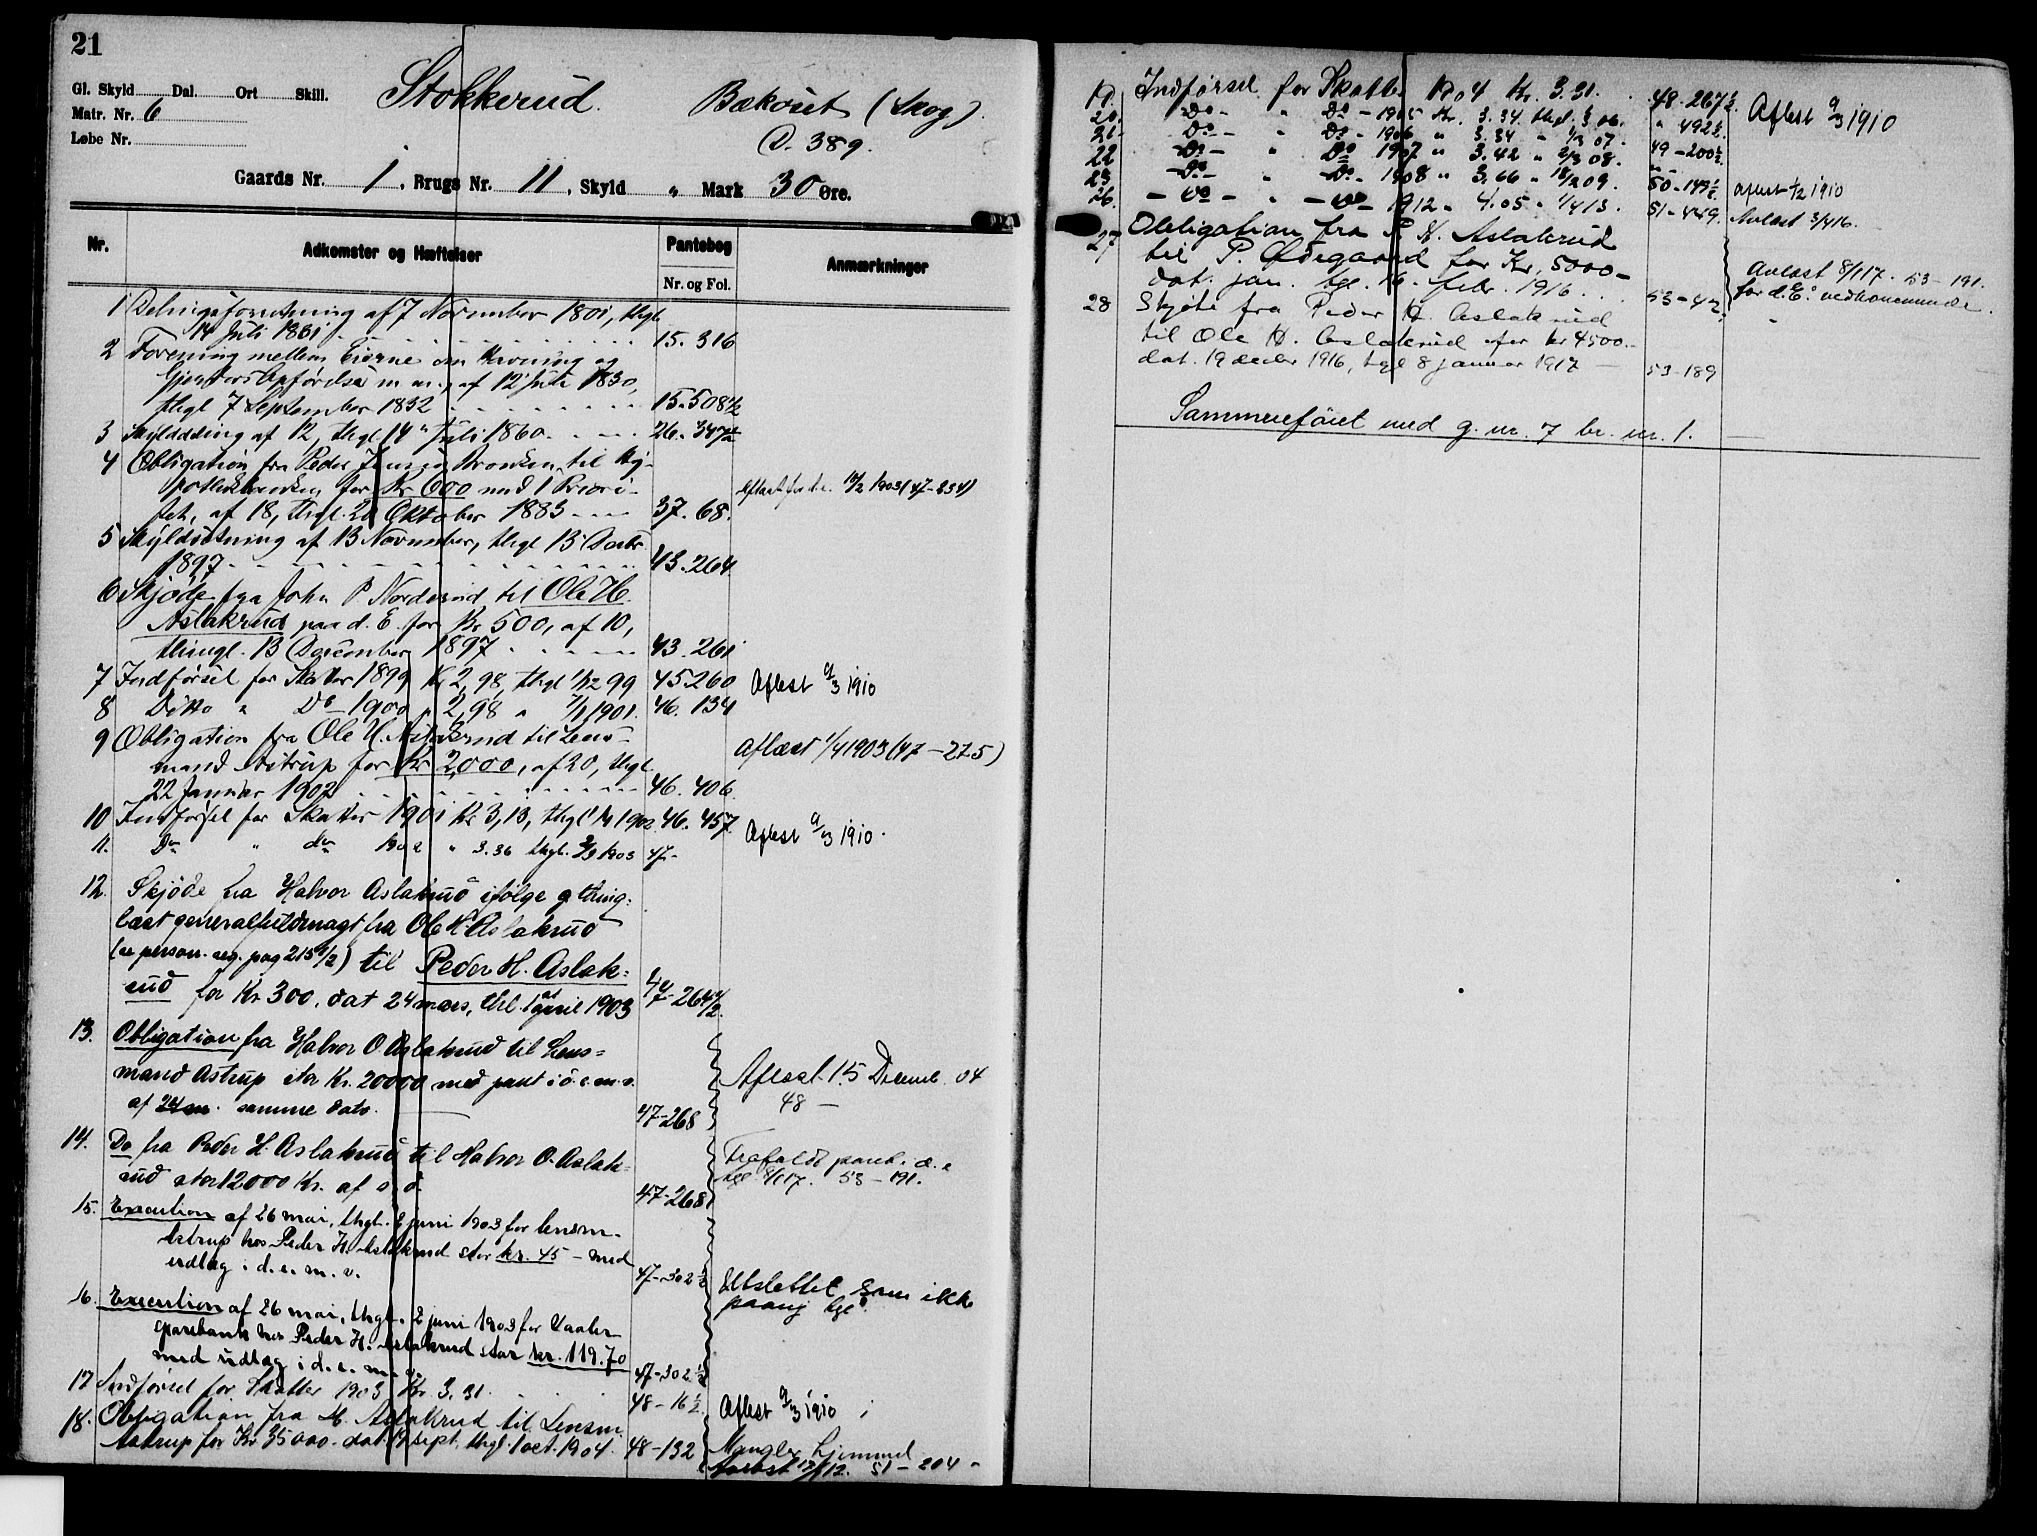 21
Gl. Skyld Dal. Ort Skill.
Stokkerud. Bækóiet (Skog).
Matr. Nr. 6
D. 389.
Løbe Nr.
Gaards Nr. 1, Brugs Nr. 11, Skyld " Mark 30 Øre.
Nr. Adkomster og Hæftelser Pantebog Anmærkninger
Nr. og Fol.
1 Delingsforretning af 7 November 1801, thgl
14 Juli 1831 15. 316
2 Forening mellem Eierne om Havning og
Gjerders Opførelse m. m., af 12 Juli 1830,
thgl 7 September 1832 15. 508 1/2
3 Skylddeling af 12, thgl 14 Juli 1860. 26. 347
4 Obligation fra Peder Jensen til Hy-
pothekbanken for Kr 600 med 1 Priori-
tet, af 18, thgl. 20 Oktober 1883 37. 68. Aflæst for d. e. 1903 (47-234)
5 Skyldsetning af 13 November, thgl 13 Decbr
1897 43. 264
6 Skjøde fra John P Norderud til Ole H.
Aslakrud paa d. E. for Kr 500, af 10,
thingl. 13 December 1897 43. 261
7 Indførsel for Skatter 1899 Kr 2,98, thgl 99 45 260 Aflest 9/3 1910
8 Ditto " Do 1900 " 2,98 " 1901. 46. 134
9 Obligation fra Ole H. Aslakrud til Lens-
mand Astrup for Kr 2,000, af 20, thgl Aflæst 1/4 1903 (47-275)
22 Januar 1902 46. 406.
10 Indførsel for Skatter 1901 Kr 3,13, thgl 1902 46. 457 Aflest 9/3 1910.
11. Do " do 1902 " 3.36 thgl. 1903 47-
12. Skjøde fra Halvor Aslakrud ifølge thing-
læst generalfuldmagt fra Ole H. Aslakrud
(se person. reg. pag 215 1/2) til Peder H. Aslak-
rud for Kr 300, dat 24 mars, thl. 1st april 1903 47-264 1/2.
13. Obligation fra Halvor O Aslakrud til Lens-
mand Astrup stor Kr. 20000 med pant i d. e. m. v. Aflæst 15 Decemb. 04
af samme dato. 47-268 48 —
14. Do fra Peder H. Aslakrud til Halvor O. Aslak- Frafaldt pant i d. e
rud stor 12000 Kr. af s. d. 47-268 tgl. 8/1 17. 53-191.
15. Execution af 26 mai, thgl. 2 juni 1903 for lensm.
Astrup hos Peder H. Aslakrud stor kr. 45 – med
udlæg i d. e. m. v. 47-302 1/2 Utslettet som ikke
paaanj tgl.
16. Execution af 26 mai, thgl. 2 juni 1903 for Vaaler
sparebank hos Peder H. Aslakrud stor kr. 119.70
med udlæg i d. e. m. v. 47-302 1/2
17 Indførsel for Skatter 1903 Kr 3.31. 48-16 1/2 Aflest 9/3 1910
18. Obligation fra H. Aslakrud til Lensm.
Astrup for Kr 35000. dat. 19 sept. thgl 1 oct. 1904. 48-132 Mangler hjemmel
Avlæst 12. 51-204
19. Indførsel for Skatter 1904 Kr. 3.31. 48-267 1/2 Aflest 9/3 1910
20. Do - " Do - 1905 Kr. 3.34 thgl. 06. " 492 1/2
21 Do - " Do - 1906 " 3.34 " 07. 49-200 1/2
22 Do - " Do 1907 " 3.42 " 2/3 08.
23 Do - " Do - 1908 " 3.66 " 18/2 09. 50-149 1/2 Aflest 1/2 1910
26. - Do - " - Do - 1912 " 4.05 " 1/4 13. 51-449. Avlæst 3/4 16.
27 Obligation fra P. H. Aslakrud
til P. Ødegaard for Kr. 5000- Avlæst 8/1 17. 53-191.
dat. jan. tgl. 16. febr. 1916 53-42 for d. E.s vedkommende.
28 Skjøte fra Peder H. Aslakrud
til Ole H. Aslakrud for kr 4500.-
dat. 19 decbr 1916, tgl 8 januar 1917 — 53-189
Sammenføiet med g. nr. 7 br. nr. 1.